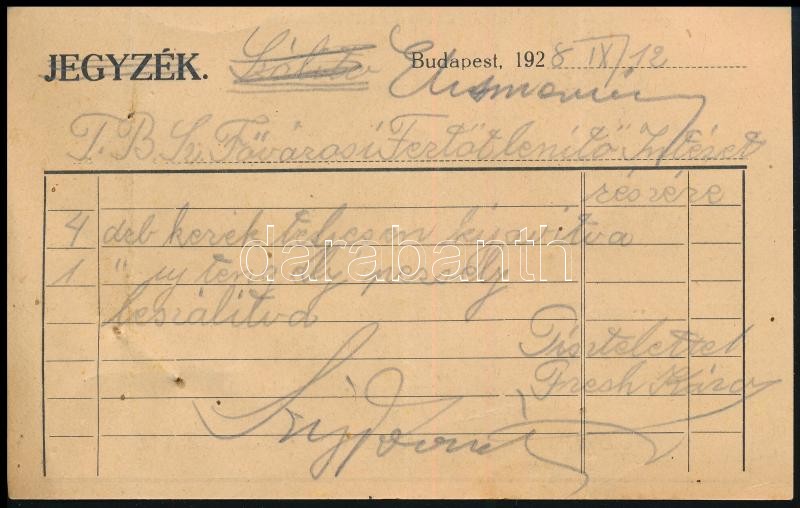 JEGYZÉK. Budapest, 1928 IX/12
Elismervény
T. B. Sz. Fővárosi Fertőtlenitő Intézet
részére
4 deb kerék teljesen kijavitva
1 " uj tengely persely
beszálitva
Tisztelettel
Fresh Károly
darabanth